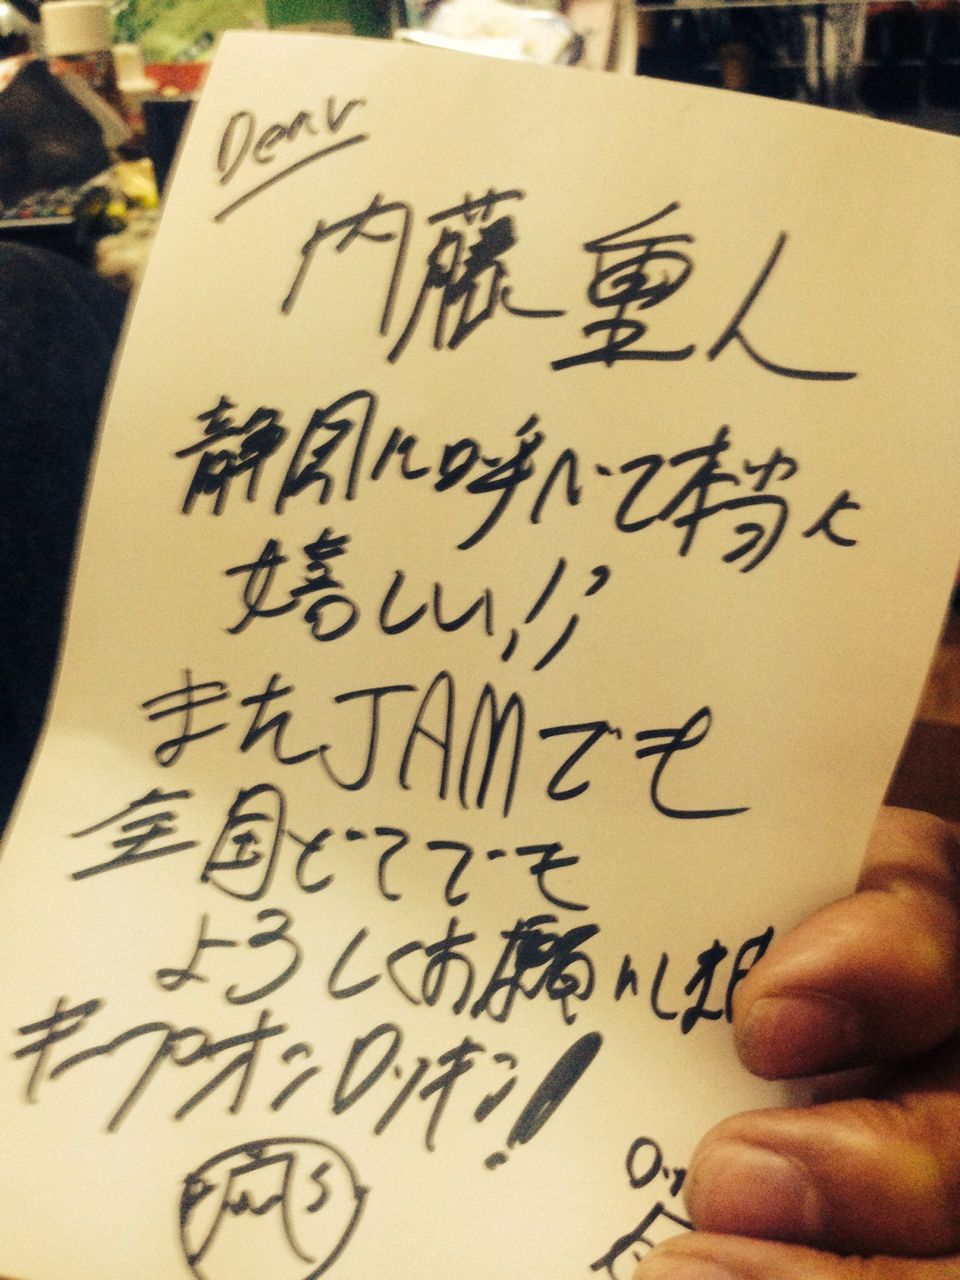 Dear
内藤重人
静岡に呼べて本当に
嬉しい!!
またJAMでも
全国どこでも
よろしくお願いしま
キープオンロッキン!